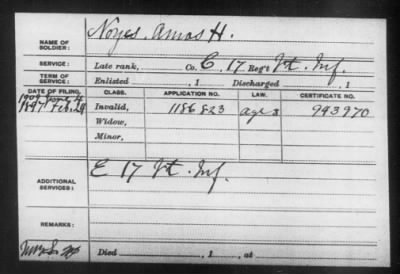 NAME OF SOLDIER: Noyes, Amos H.
SERVICE: Late rank, Co. E, 17 Reg't Vt. Inf.
TERM OF SERVICE: Enlisted , 1 Discharged , 1
DATE OF FILING. CLASS. APPLICATION NO. LAW. CERTIFICATE NO.
1897 Feb. 24 Invalid, 1186823 993970
Widow,
Minor,
ADDITIONAL SERVICES: E 17 Vt. Inf.
REMARKS:
Died , 1 , at